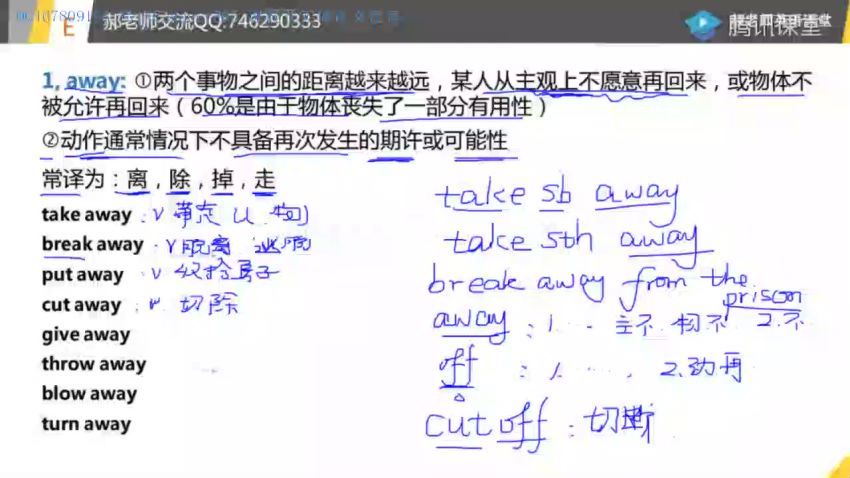 郝老师交流QQ:746290333
腾讯课堂
E
1, away: ①两个事物之间的距离越来越远，某人从主观上不愿意再回来，或物体不
被允许再回来（60%是由于物体丧失了一部分有用性）
②动作通常情况下不具备再次发生的期许或可能性
常译为：离，除，掉，走
take away : v 带走 (人 物)
break away · v 脱离 逃脱
put away : v 收拾房子
cut away : v. 切除
give away
throw away
blow away
turn away
take sb away
take sth away
break away from the prison
away : 1. ... 主不 物不 2.不
off : 1. ..... 2.动再
cut off : 切断